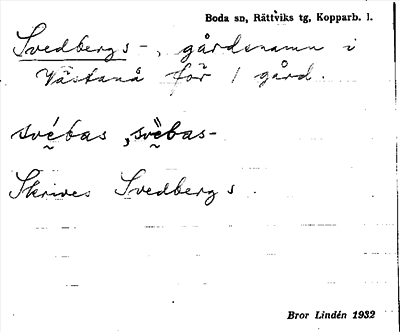 Boda sn, Rättviks tg, Kopparb. l.
Svedbergs-, gårdsnamn i
Västanå för 1 gård.
své̮bas, svè̮bas-
Skrives Svedbergs.
Bror Lindén 1932